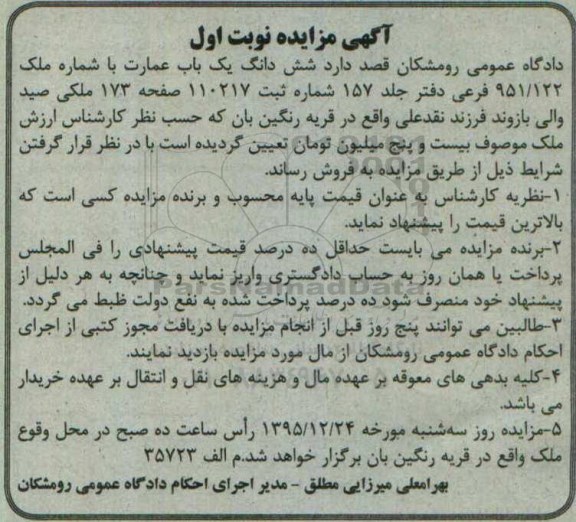 آگهی مزایده نوبت اول
دادگاه عمومی رومشکان قصد دارد شش دانگ یک باب عمارت با شماره ملک
۹۵۱/۱۲۲ فرعی دفتر جلد ۱۵۷ شماره ثبت ۱۱۰۲۱۷ صفحه ۱۷۳ ملکی صید
والی بازوند فرزند نقدعلی واقع در قریه رنگین بان که حسب نظر کارشناس ارزش
ملک موصوف بیست و پنج میلیون تومان تعیین گردیده است با در نظر قرار گرفتن
شرایط ذیل از طریق مزایده به فروش رساند.
۱-نظریه کارشناس به عنوان قیمت پایه محسوب و برنده مزایده کسی است که
بالاترین قیمت را پیشنهاد نماید.
۲-برنده مزایده می بایست حداقل ده درصد قیمت پیشنهادی را فی المجلس
پرداخت یا همان روز به حساب دادگستری واریز نماید و چنانچه به هر دلیل از
پیشنهاد خود منصرف شود ده درصد پرداخت شده به نفع دولت ظبط می گردد.
۳-طالبین می توانند پنج روز قبل از انجام مزایده با دریافت مجوز کتبی از اجرای
احکام دادگاه عمومی رومشکان از مال مورد مزایده بازدید نمایند.
۴-کلیه بدهی های معوقه بر عهده مال و هزینه های نقل و انتقال بر عهده خریدار
می باشد.
۵-مزایده روز سه‌شنبه مورخه ۱۳۹۵/۱۲/۲۴ رأس ساعت ده صبح در محل وقوع
ملک واقع در قریه رنگین بان برگزار خواهد شد.م الف ۳۵۷۲۳
بهرامعلی میرزایی مطلق - مدیر اجرای احکام دادگاه عمومی رومشکان
ParsNamadData